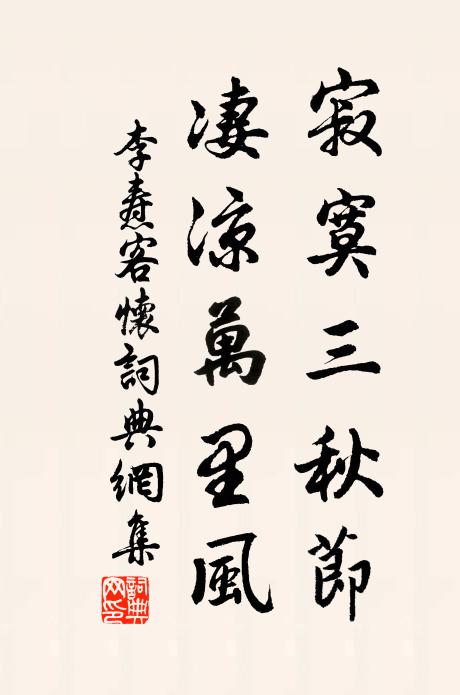 寂寞三秋節
淒涼萬里風
李燾客懷詞典網集
詞典網印